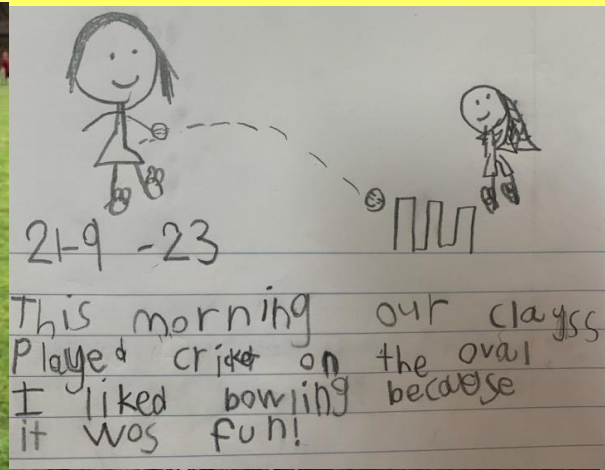 21-9 -23
This morning our clayss
Played cricket on the oval
I liked bowling becaese
it wos fun!